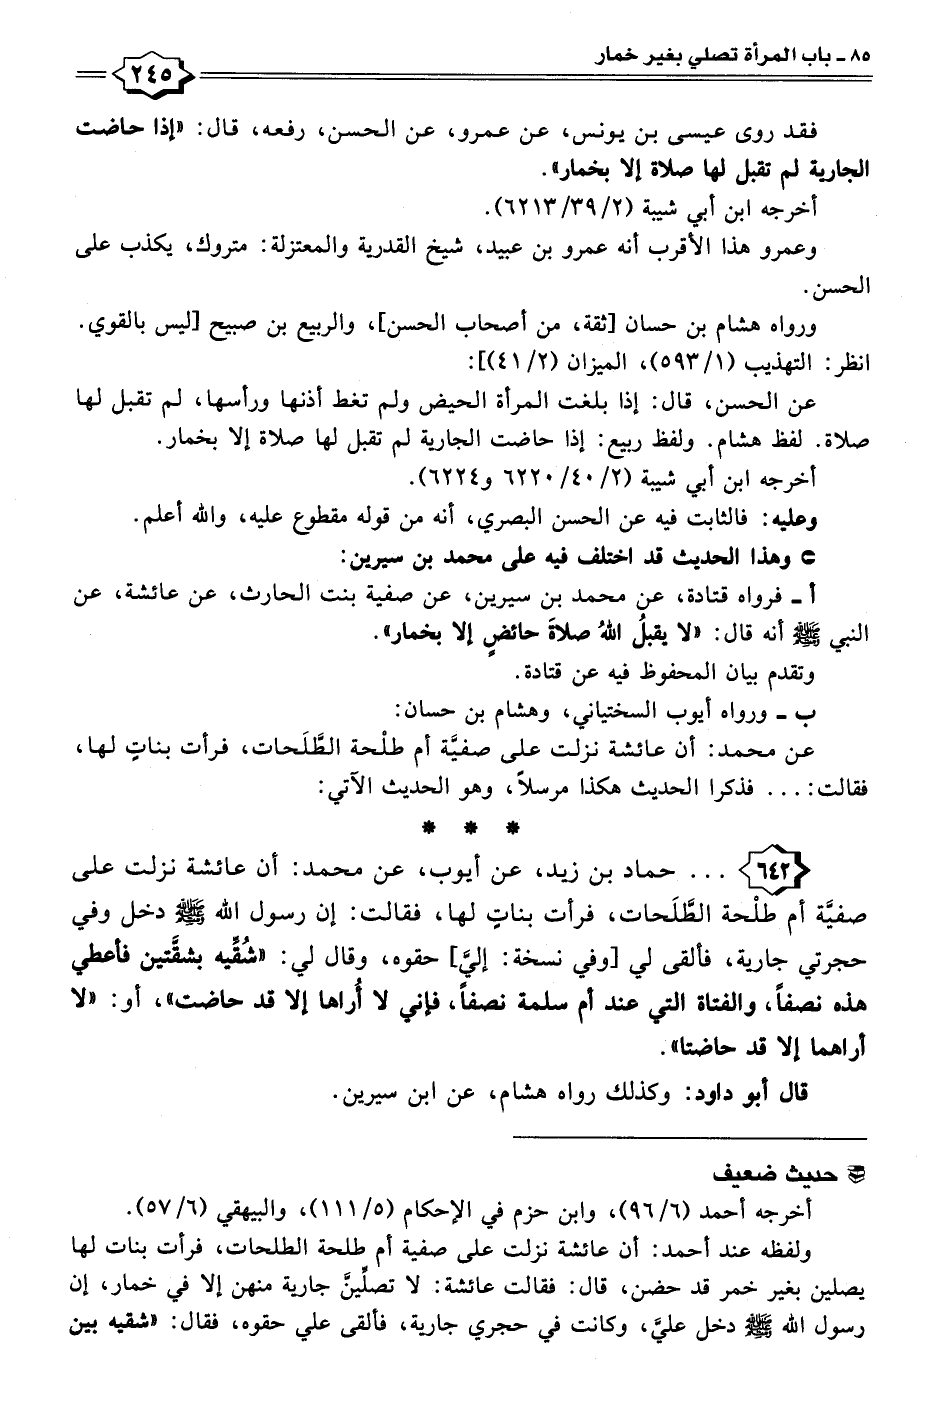 ٨٥ - باب المرأة تصلي بغير خمار
٢٤٥
فقد روى عيسى بن يونس، عن عمرو، عن الحسن، رفعه، قال: «إذا حاضت
الجارية لم تقبل لها صلاة إلا بخمار».
أخرجه ابن أبي شيبة (٦٢١٣/٣٩/٢).
وعمرو هذا الأقرب أنه عمرو بن عبيد، شيخ القدرية والمعتزلة: متروك، يكذب على
الحسن.
ورواه هشام بن حسان [ثقة، من أصحاب الحسن]، والربيع بن صبيح [ليس بالقوي.
انظر: التهذيب (٥٩٣/١)، الميزان (٤١/٢)]:
عن الحسن، قال: إذا بلغت المرأة الحيض ولم تغط أذنها ورأسها، لم تقبل لها
صلاة. لفظ هشام. ولفظ ربيع: إذا حاضت الجارية لم تقبل لها صلاة إلا بخمار.
أخرجه ابن أبي شيبة (٦٢٢٠/٤٠/٢ و٦٢٢٤).
وعليه: فالثابت فيه عن الحسن البصري، أنه من قوله مقطوع عليه، والله أعلم.
وهذا الحديث قد اختلف فيه على محمد بن سيرين:
أ - فرواه قتادة، عن محمد بن سيرين، عن صفية بنت الحارث، عن عائشة، عن
النبي ﷺ أنه قال: «لا يقبلُ اللهُ صلاةَ حائضٍ إلا بخمار».
وتقدم بيان المحفوظ فيه عن قتادة.
ب - ورواه أيوب السختياني، وهشام بن حسان:
عن محمد: أن عائشة نزلت على صفيَّة أم طلْحة الطَّلَحات، فرأت بناتٍ لها،
فقالت: ... فذكرا الحديث هكذا مرسلاً، وهو الحديث الآتي:
* * *
٦٤٢ ... حماد بن زيد، عن أيوب، عن محمد: أن عائشة نزلت على
صفيَّة أم طلْحة الطَّلَحات، فرأت بناتٍ لها، فقالت: إن رسول الله ﷺ دخل وفي
حجرتي جارية، فألقى لي [وفي نسخة: إليَّ] حقوه، وقال لي: «شُقِّيه بشقَّتين فأعطي
هذه نصفاً، والفتاة التي عند أم سلمة نصفاً، فإني لا أُراها إلا قد حاضت»، أو: «لا
أراهما إلا قد حاضتا».
قال أبو داود: وكذلك رواه هشام، عن ابن سيرين.
حديث ضعيف
أخرجه أحمد (٩٦/٦)، وابن حزم في الإحكام (١١١/٥)، والبيهقي (٥٧/٦).
ولفظه عند أحمد: أن عائشة نزلت على صفية أم طلحة الطلحات، فرأت بنات لها
يصلين بغير خمر قد حضن، قال: فقالت عائشة: لا تصلِّينَّ جارية منهن إلا في خمار، إن
رسول الله ﷺ دخل عليَّ، وكانت في حجري جارية، فألقى علي حقوه، فقال: «شقيه بين